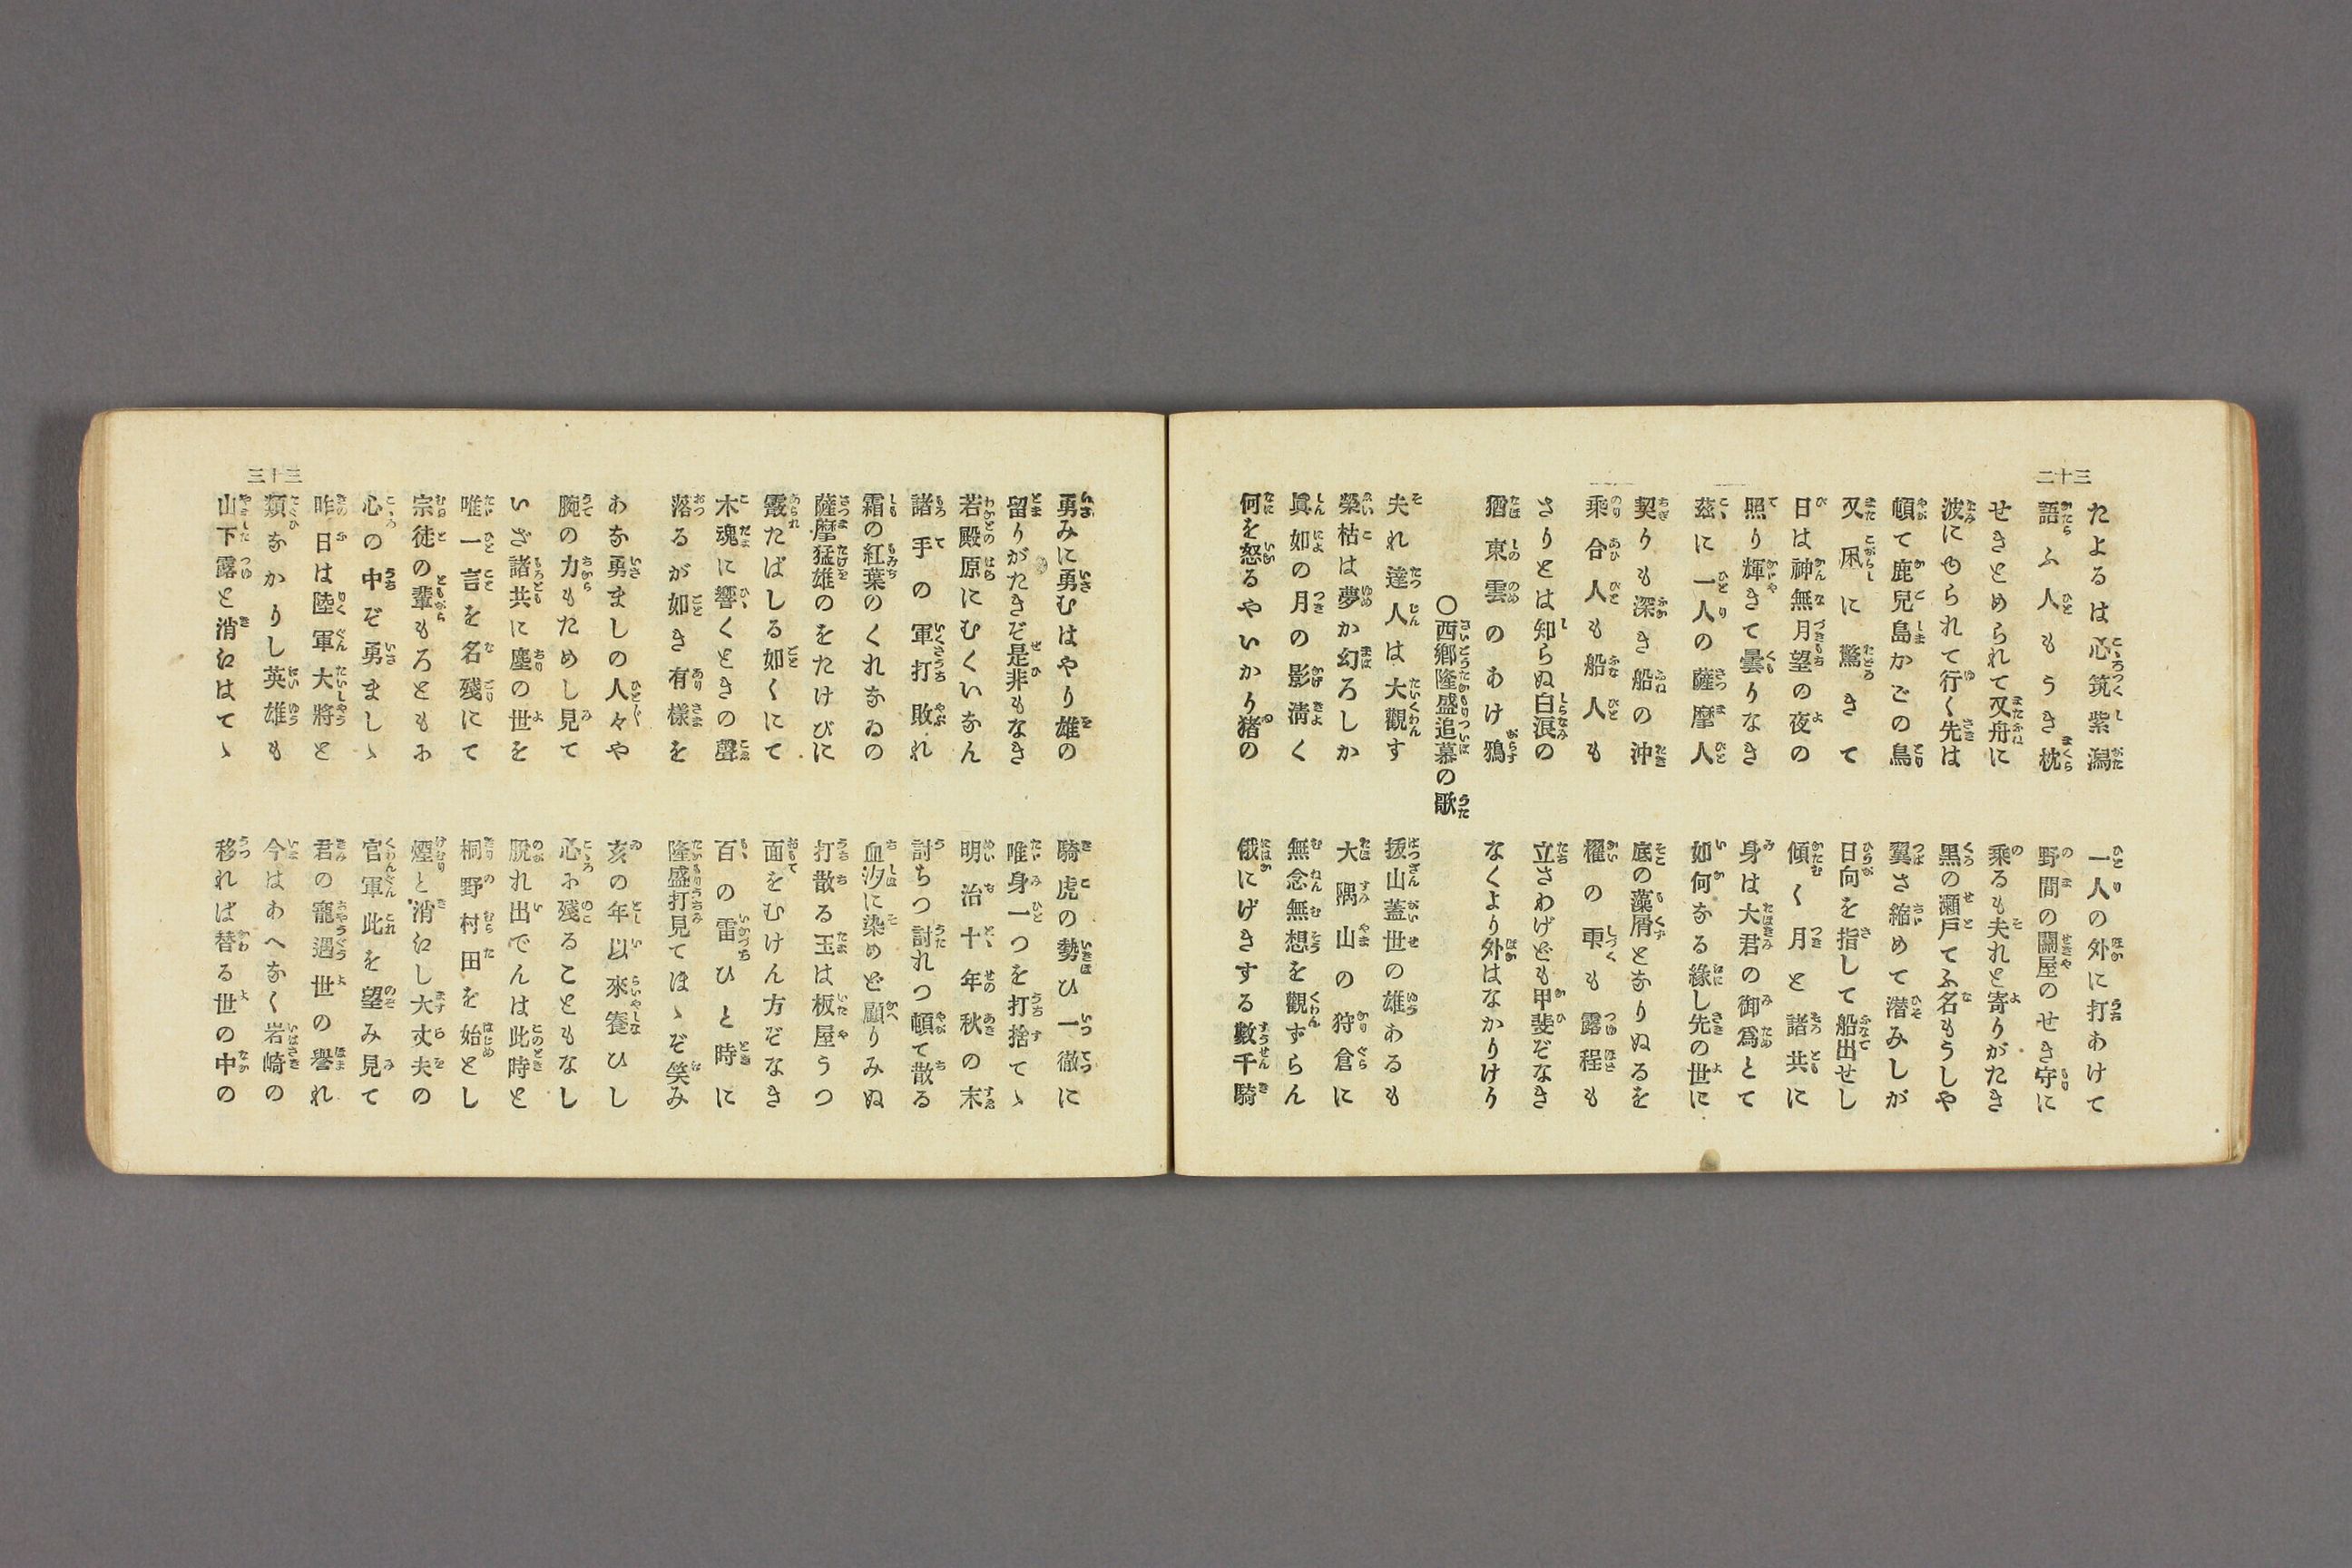 三十二
たよるは心筑紫潟
一人の外に打あけて
語らふ人もうき枕
野間の關屋のせき守に
せきとめられて又舟に
乘るも夫れと寄りがたき
波にゆられて行く先は
黒の瀬戸てふ名もうしや
頓て鹿兒島かごの鳥
翼さ縮めて潜みしが
又凩に驚きて
日向を指して船出せし
日は神無月望の夜の
傾く月と諸共に
照り輝きて曇りなき
身は大君の御爲とて
茲に一人の薩摩人
如何なる縁し先の世に
契りも深き船の沖
底の藻屑となりぬるを
乘合人も船人も
櫂の雫も露程も
さりとは知らぬ白浪の
立さわげども甲斐ぞなき
猶東雲のあけ鴉
なくより外はなかりけり
〇西郷隆盛追慕の歌
夫れ達人は大觀す
拔山蓋世の雄あるも
榮枯は夢か幻ろしか
大隅山の狩倉に
眞如の月の影淸く
無念無想を觀ずらん
何を怒るやいかり猪の
俄にげきする數千騎
三十三
勇みに勇むはやり雄の
騎虎の勢ひ一徹に
留りがたきぞ是非もなき
唯身一つを打捨てゝ
若殿原にむくいなん
明治十年秋の末
諸手の軍打敗れ
討ちつ討れつ頓て散る
霜の紅葉のくれなゐの
血汐に染めど顧りみぬ
薩摩猛雄のをたけびに
打散る玉は板屋うつ
霰たばしる如くにて
面をむけん方ぞなき
木魂に響くときの聲
百の雷ひと時に
落るが如き有樣を
隆盛打見てほゝぞ笑み
あな勇ましの人々や
亥の年以來養ひし
腕の力もためし見て
心に殘ることもなし
いざ諸共に塵の世を
脱れ出でんは此時と
唯一言を名殘にて
桐野村田を始とし
宗徒の輩もろともに
煙と消えし大丈夫の
心の中ぞ勇ましゝ
官軍此を望み見て
昨日は陸軍大將と
君の寵遇世の譽れ
類なかりし英雄も
今はあへなく岩崎の
山下露と消えはてゝ
移れば替る世の中の